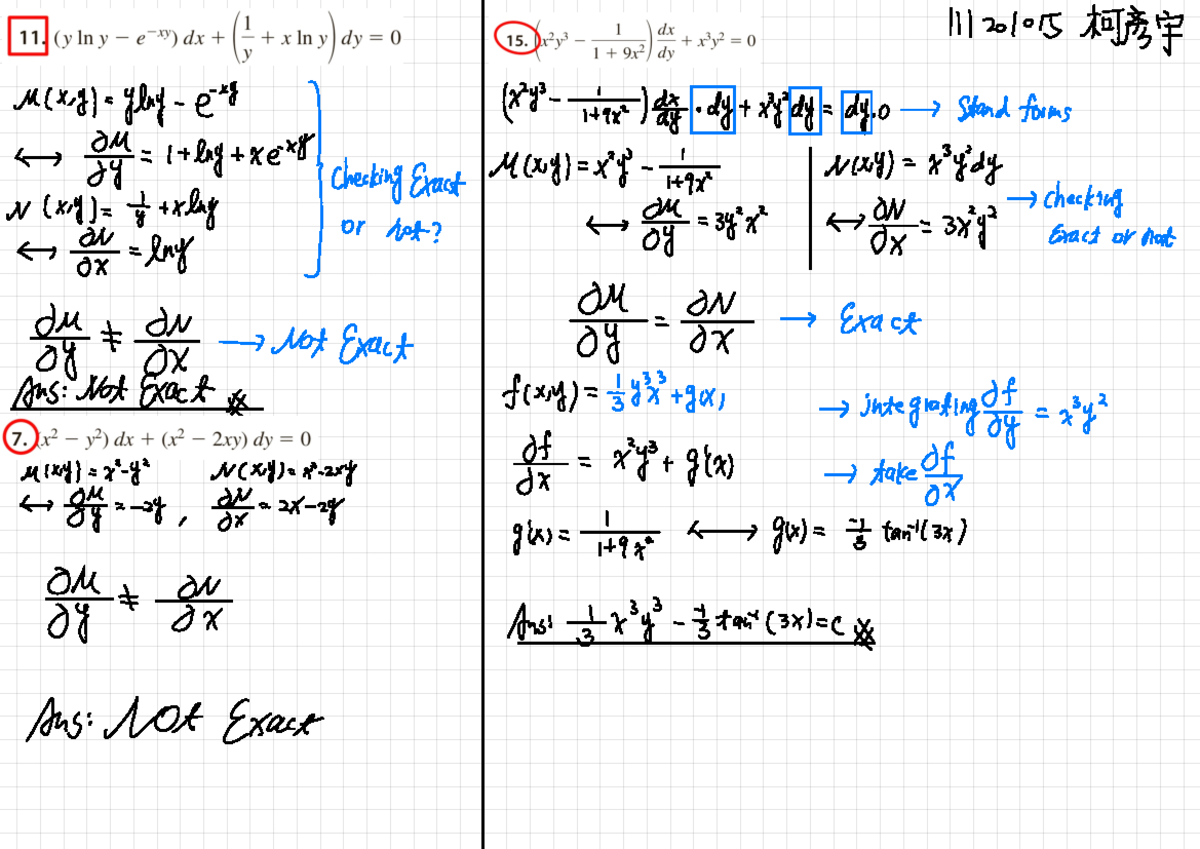 111201015 柯彥宇
11. (y ln y − e^{−xy}) dx + (1/y + x ln y) dy = 0
M(x,y) = y ln y − e^{−xy}
⟷ ∂M/∂y = 1 + ln y + x e^{−xy}
N(x,y) = 1/y + x ln y
⟷ ∂N/∂x = ln y
Checking Exact
or not?
∂M/∂y ≠ ∂N/∂x → Not Exact
Ans: Not Exact ※
7. (x² − y²) dx + (x² − 2xy) dy = 0
M(x,y) = x² − y² N(x,y) = x² − 2xy
⟷ ∂M/∂y = −2y , ∂N/∂x = 2x − 2y
∂M/∂y ≠ ∂N/∂x
Ans: Not Exact
15. (x²y³ − 1/(1 + 9x²)) dx/dy + x³y² = 0
(x²y³ − 1/(1+9x²)) dx/dy · dy + x³y² dy = dy · 0 → Stand forms
M(x,y) = x²y³ − 1/(1+9x²) | N(x,y) = x³y² dy
⟷ ∂M/∂y = 3y²x² ⟷ ∂N/∂x = 3x²y²
→ checking
Exact or not
∂M/∂y = ∂N/∂x → Exact
f(x,y) = 1/3 y³x³ + g(x) → integrating ∂f/∂y = x³y²
∂f/∂x = x²y³ + g'(x) → take ∂f/∂x
g'(x) = 1/(1+9x²) ⟷ g(x) = −1/3 tan⁻¹(3x)
Ans: 1/3 x³y³ − −1/3 tan⁻¹(3x) = C ※